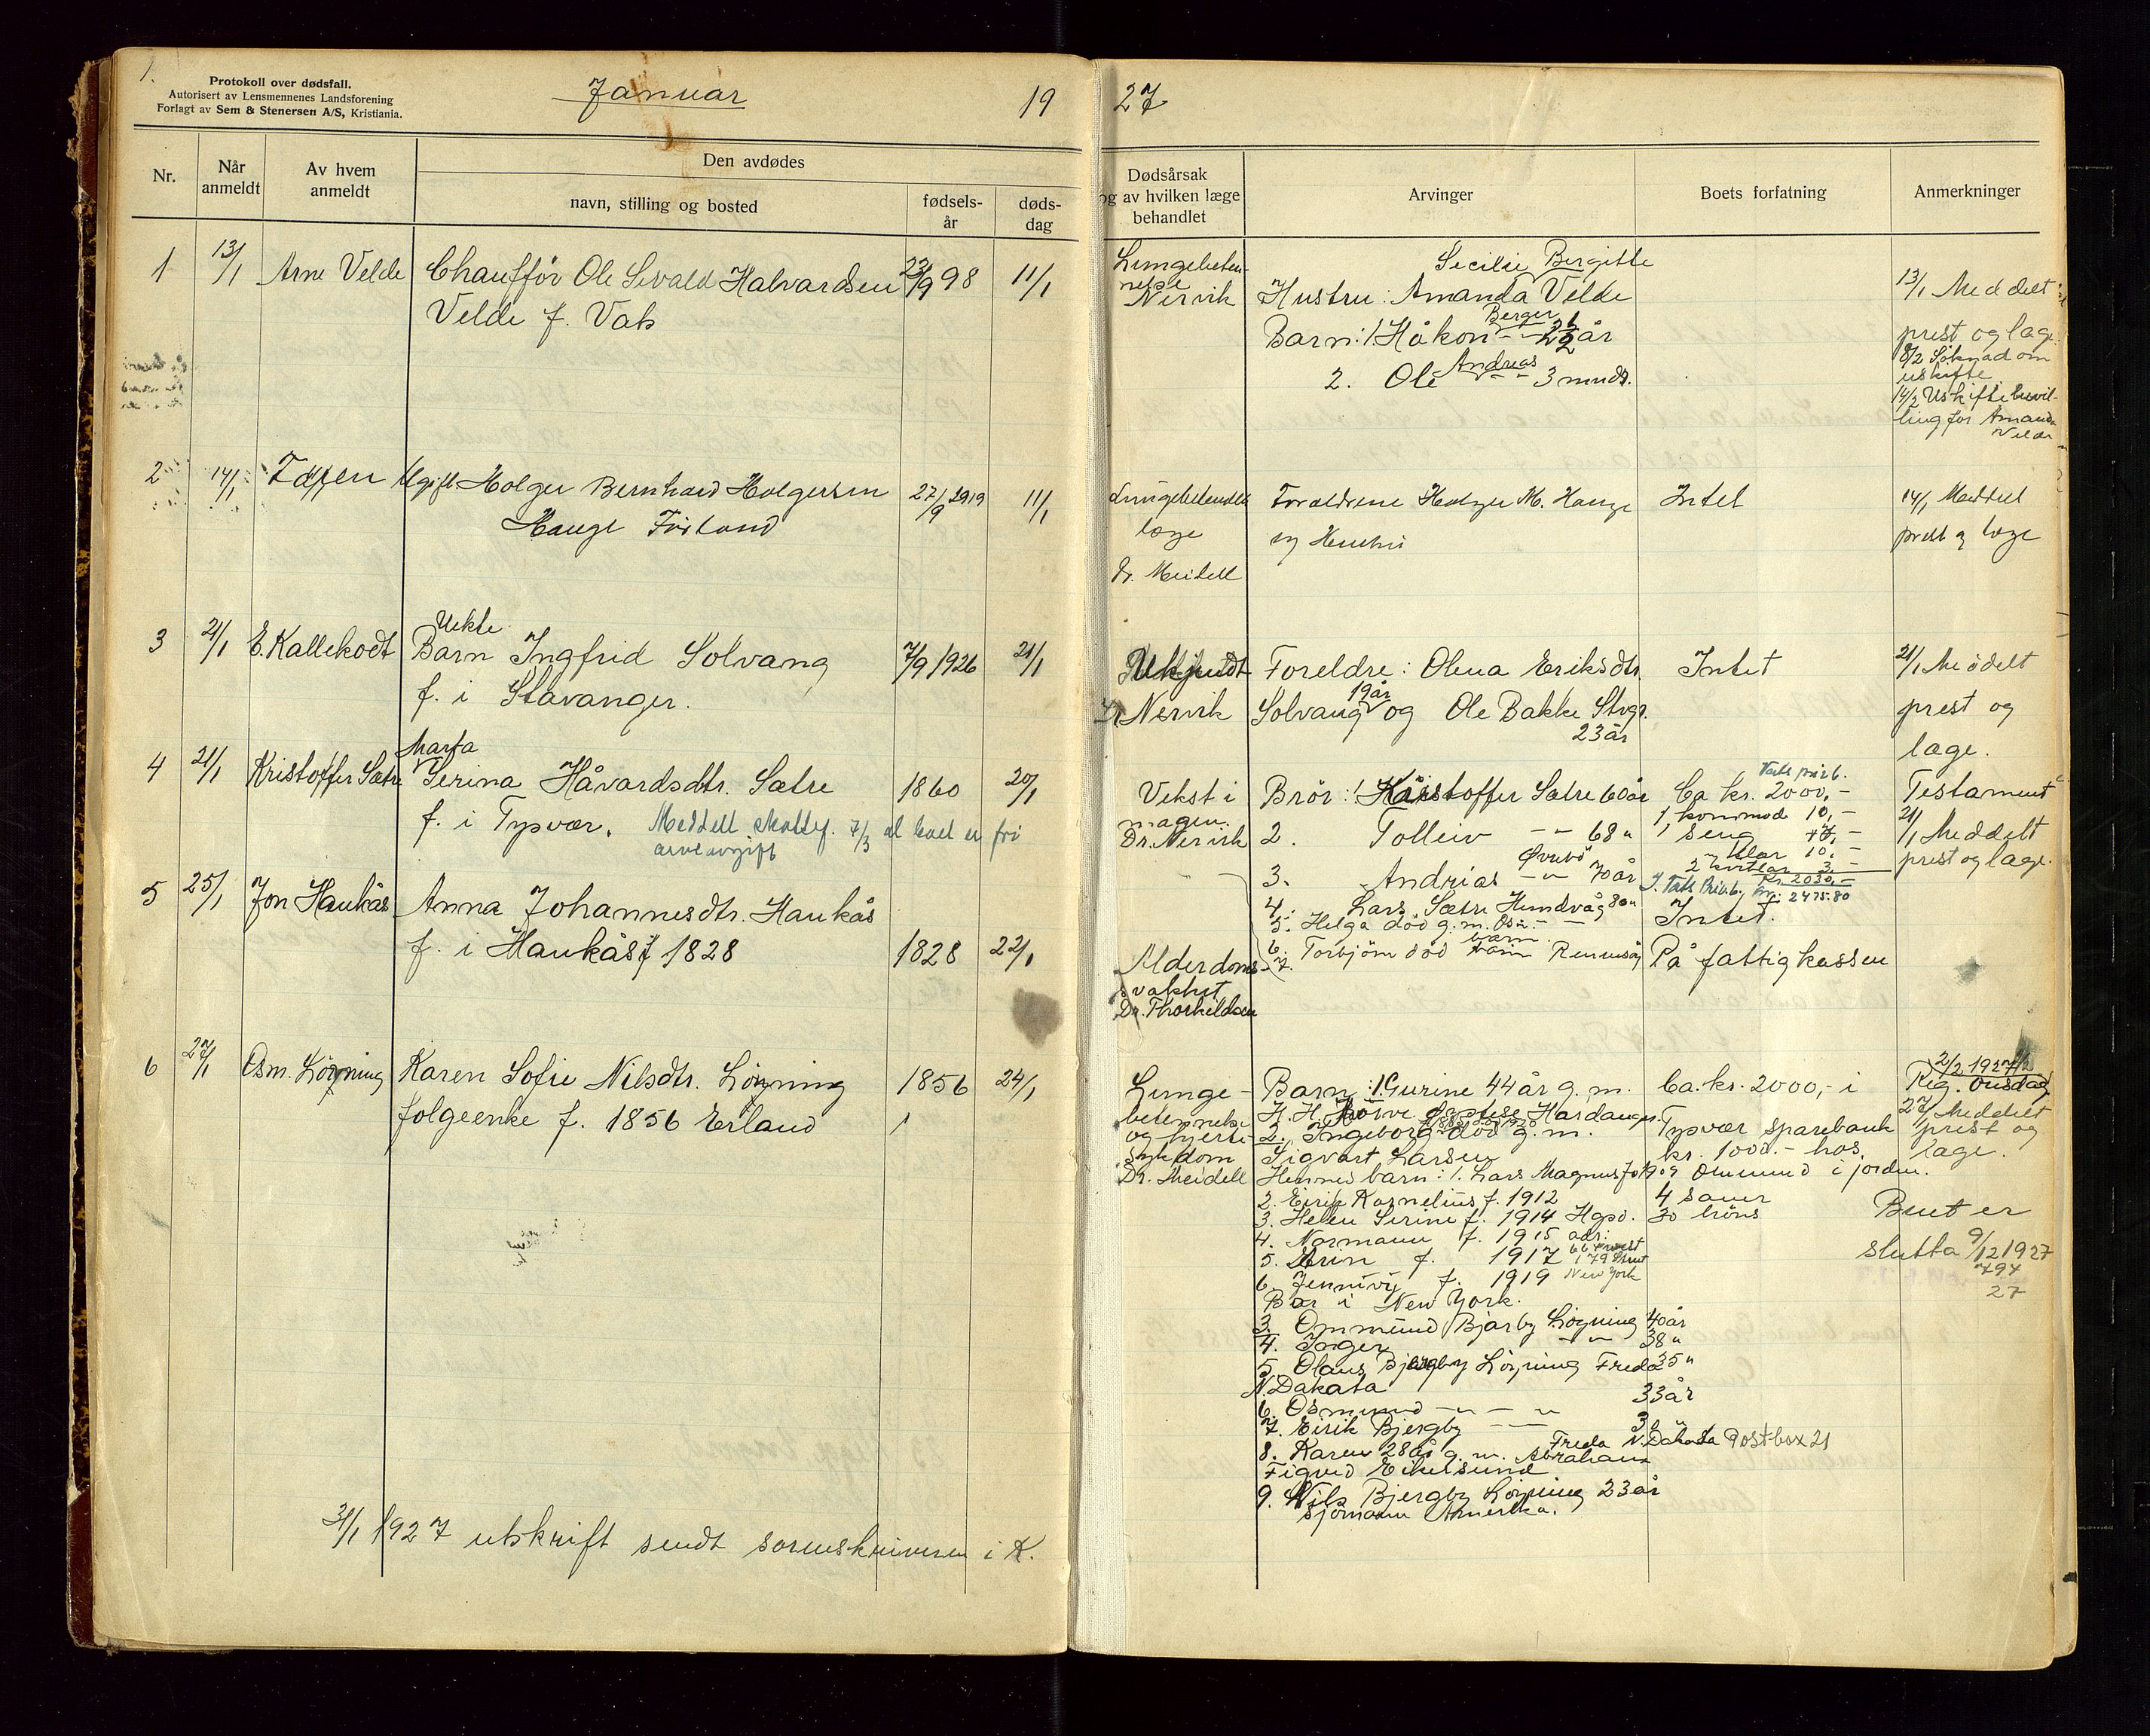 1.
Protokoll over dødsfall.
Autorisert av Lensmennenes Landsforening
Forlagt av Sem & Stenersen A/S, Kristiania.
Januar
19
27
Nr.
Når anmeldt
Av hvem anmeldt
Den avdødes
navn, stilling og bosted
fødsels-år
døds-dag
Dødsårsak
og av hvilken læge
behandlet
Arvinger
Boets forfatning
Anmerkninger
1 13/1 Arne Velde Chauffør Ole Sivald Halvardsen 23/9 98 11/1
Velde f. Vats
Lungebeten-
nelse
Nervik
Secilie Bergitte
Hustru: Amanda Velde
Berger
Barn: 1. Håkon -"- 2 1/2 år
Andreas
2. Ole -"- 3 mndr.
13/1 Meddelt
prest og læge
8/2 Søknad om
uskifte
14/2 Uskiftebevil-
ling for Amanda
Velde
2 14/1 Ugift Holger Bernhard Holgersen 27/9 1919 11/1
Hauge Førland
læge
dr. Meidell
Foreldrene Holger M. Hauge
og Hustru
Intet
14/1 Meddelt
prest og læge
3 21/1 E. Kallekodt
Uekte
Barn Ingfrid Solvang 7/9 1926 21/1
f. i Stavanger.
Ukjendt
Dr Nervik
Foreldre: Olena Eriksdtr.
19 år
Solvang og Ole Bakke Stvgr.
23 år
Intet
21/1 Meddelt
prest og
læge.
4 21/1 Kristoffer Sætre
Marta
Serina Håvardsdtr. Sætre 1860 20/1
f. i Tysvær. Meddelt 7/3 at boet er fri
arveavgift
Vekst i
magen.
Dr. Nervik
Brør: 1. Kristoffer Sætre 60 år
2. Tolleiv -"- 68 "
Øvrebø
3. Andrias -"- 70 år
4. Lars Sætre Hundvåg 80 "
5. Helga død g. m.
barn
6. Torbjørn død
7.
Ca kr. 2000,-
1 kommod 10,-
1 seng
10,-
3,-
Kr. 2030,-
2475.80
Intet.
Testament
21/1 Meddelt
prest og læge.
5 25/1 Jon Haukås Anna Johannesdtr. Haukås
f. i Haukås f 1828 1828 22/1
Alderdoms-
svakhet
Dr. Thorkildsen
På fattigkassen
6 27/1 Osm. Løyning Karen Sofie Nilsdtr. Løyning 1856 24/1
følgeenke f. 1856 Erland
Lunge-
betennelse
og hjerte-
sykdom
Dr. Meidell
Barn: 1. Gurine 44 år g. m.
Hardanger.
2. Ingeborg død g. m.
Sigvart Larsen
Hennes barn: 1. Lars Magnus f. 1909
2. Eirik Kornelius f. 1912
3. Helen Serine f. 1914
4. Normann f. 1915 adr:
5. f. 1917
6. f. 1919 New York
Bor i New York.
3. Ommund Bjarby Løyning 40 år
4. Inger -"- 38 "
5. Olaus Bjergby Løyning Freda 35 "
N. Dakata
6. Osmund -"- -"- 33 år
7. Eirik Bjergby -"-
Freda N. Dakata Postbox 21
8. Karen 28 år g. m. Abraham
Sigved Eikelsund
9. Nils Bjergby Løyning 23 år
Sjømann Amerika.
Ca. kr. 2000,- i
Tysvær sparebank
kr. 1000.- hos
Ommund i jorden.
4 sauer
30 høns
2/2 1927
Reg.
27/1 Meddelt
prest og
læge.
Buet er
slutta 9/12 1927
794
27
31/1 1927 utskrift sendt sorenskriveren i K.